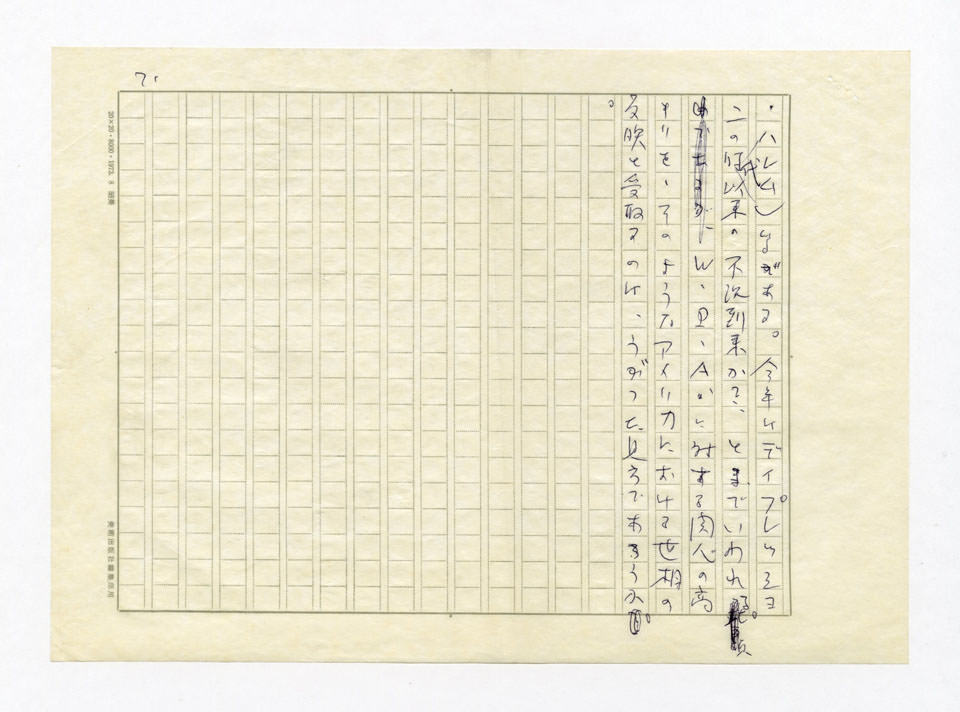 71
・ハレム」などがある。今年はディプレッショ
ンの時代以来の不況到来か?、とまでいわれ
W・P・Aに対する関心の高
まりを、そのようなアメリカにおける世相の
反映と受取るのは、うがった見方であろうか。
20×20・6000・1973. 8
美術出版社編集部用